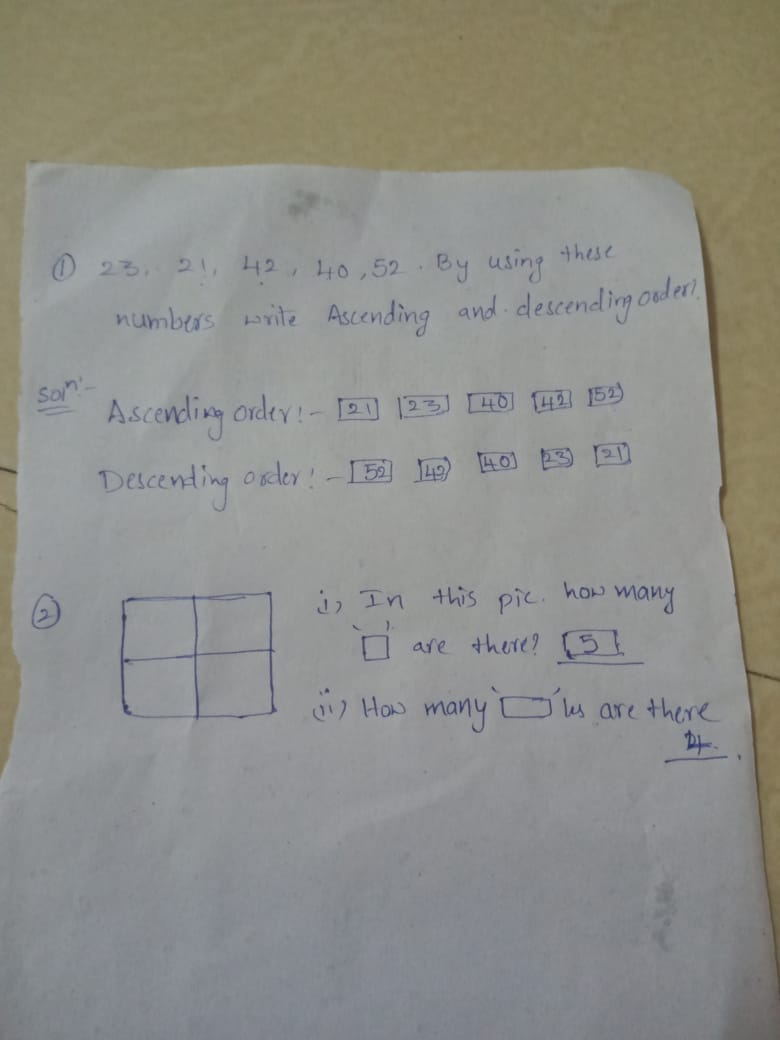 ① 23, 21, 42, 40, 52. By using these
numbers write Ascending and descending order?
Soln:-
Ascending order:- 21 23 40 42 52
Descending order:- 52 42 40 23 21
② i) In this pic. how many
'□' are there? 5
(ii) How many '▭'les are there
4.